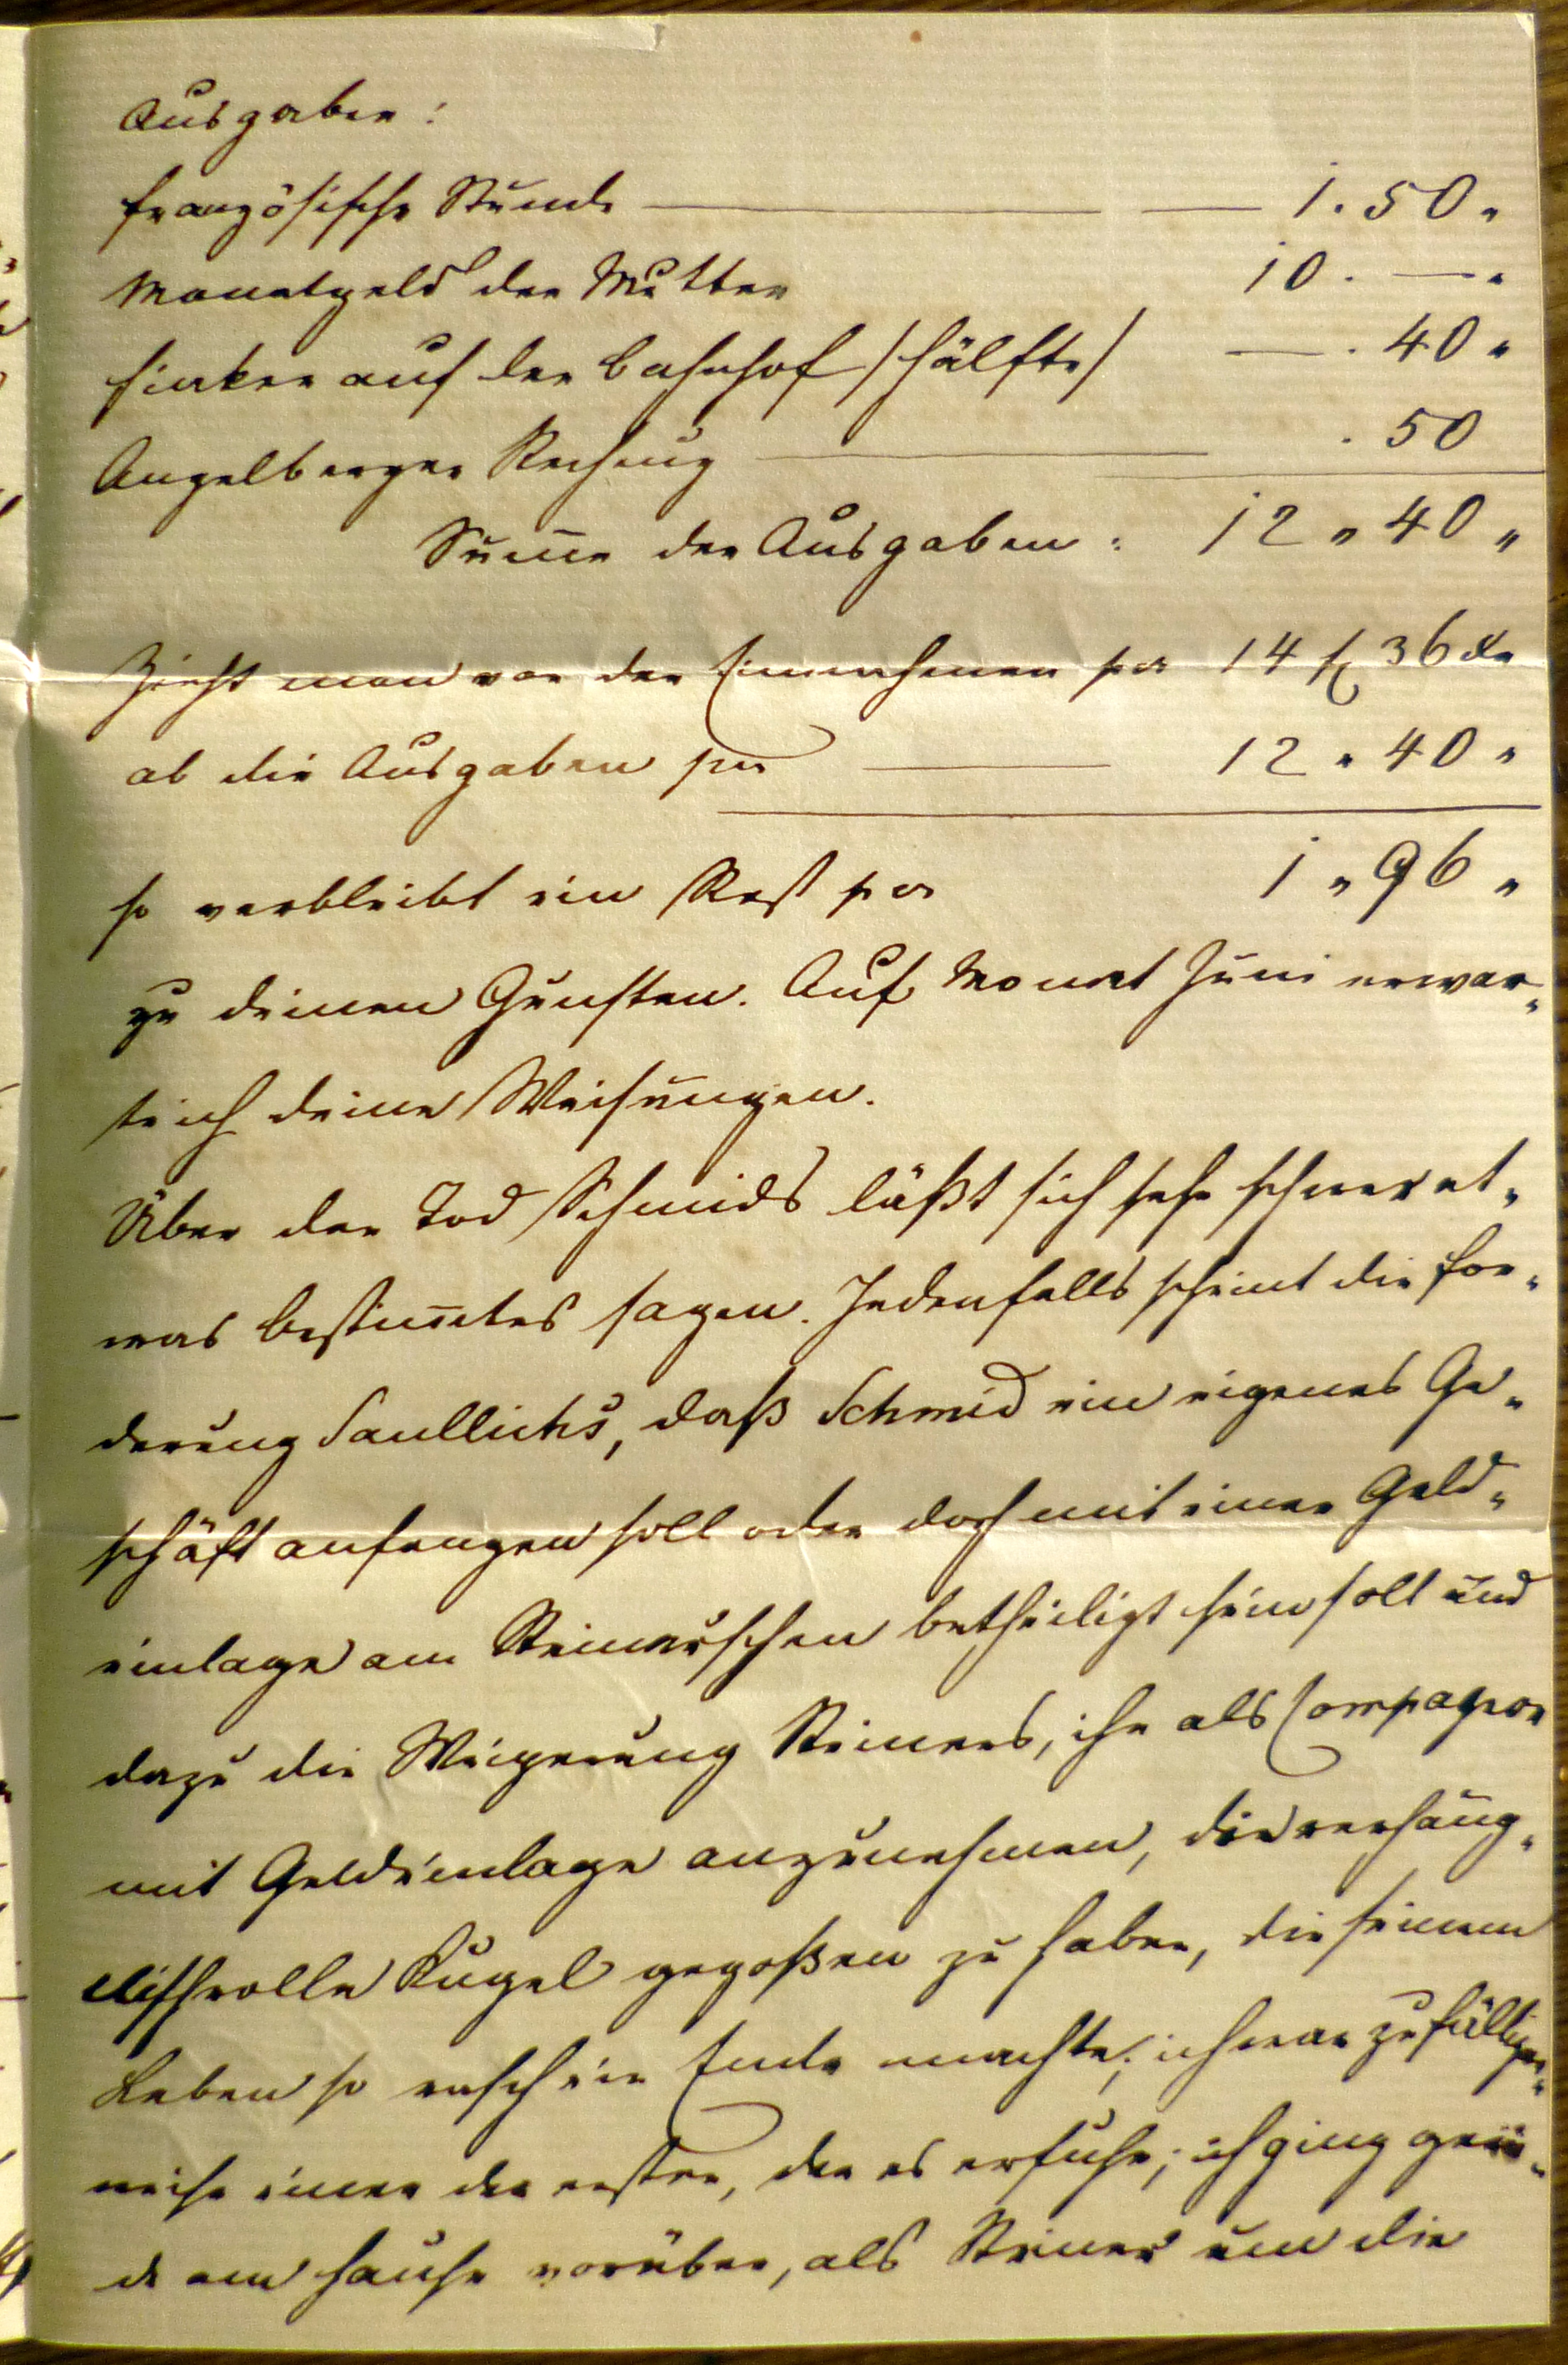 Ausgaben:
französische Stunde — — 1.50 „
Monatgeld der Mutter 10. — „
Fiaker auf den Bahnhof /Hälfte/ — . 40 „
Angelberger Rechnung — . 50
Sum̅e der Ausgaben: 12 „ 40 „
Zieht man von den Einnahmen per 14 fl 36 xr
ab die Ausgaben per — 12 „ 40 „
so verbleibt ein Rest per 1 „ 96 „
zu deinen Gunsten. Auf Monat Juni erwar„
te ich deine Weisungen.
Über den Tod Schmids läßt sich sehr schwer et„
was bestim̅tes sagen. Jedenfalls scheint die For„
derung Saullichs, daß Schmid ein eigenes Ge„
schäft anfangen soll oder doch mit einer Geld„
einlage am Steinerschen betheiligt sein soll und
dazu die Weigerung Steiners, ihn als Compagnon
mit Geldeinlage anzunehmen, die verhäng„
nißvolle Kugel gegoßen zu haben, die seinem
Leben so rasch ein Ende machte; ich war zufälliger„
weise einer der ersten, der es erfuhr; ich ging gera„
de am Hause vorüber, als Steiner um die